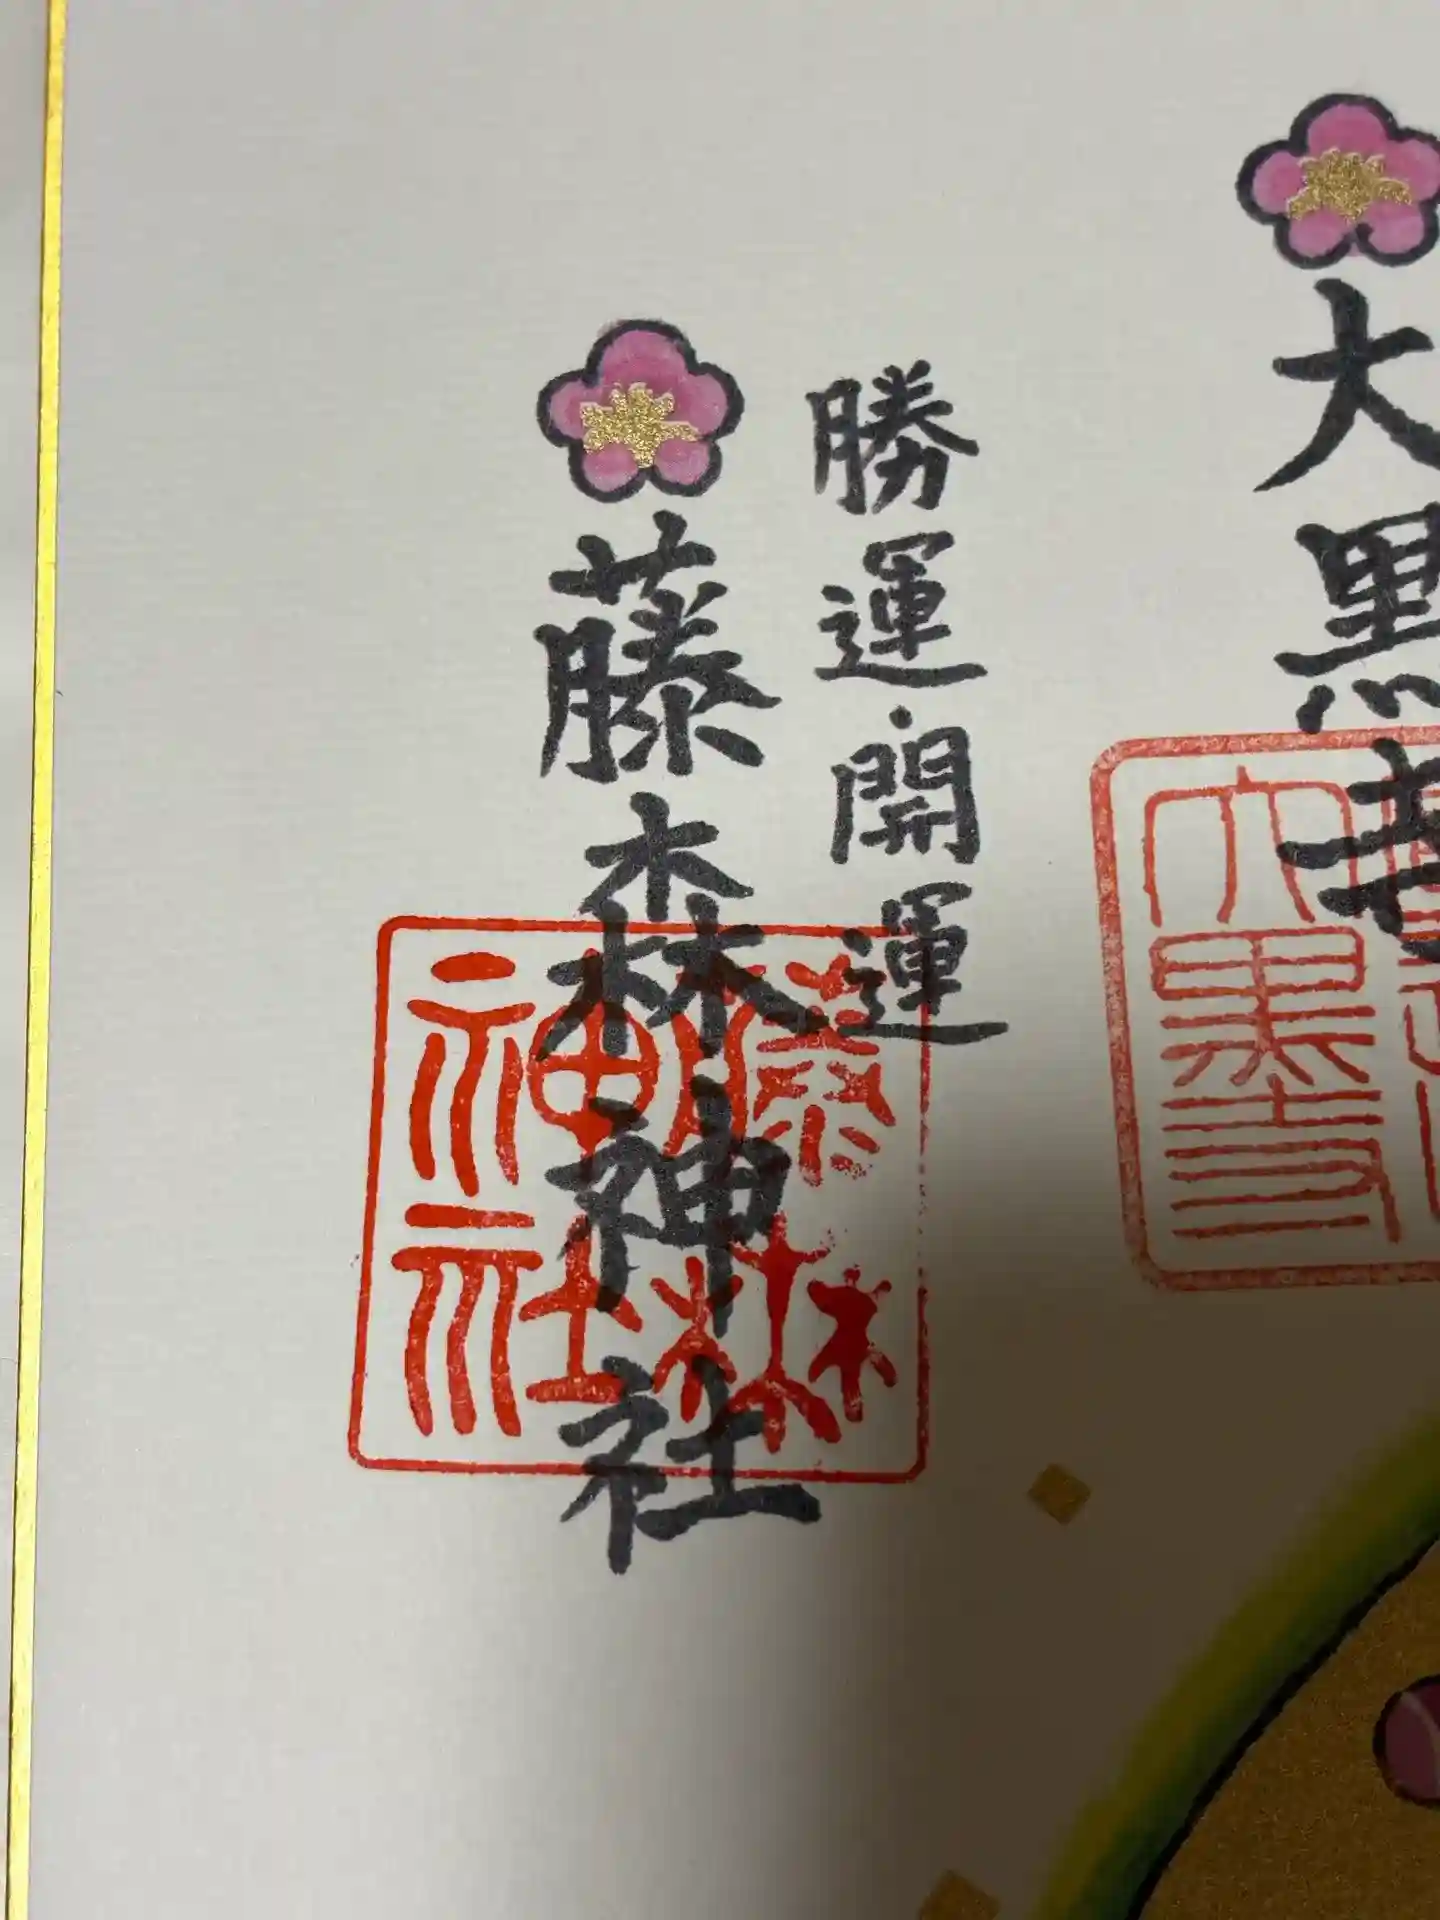 大黒寺
勝運開運
藤森神社
大黒寺
藤森神社